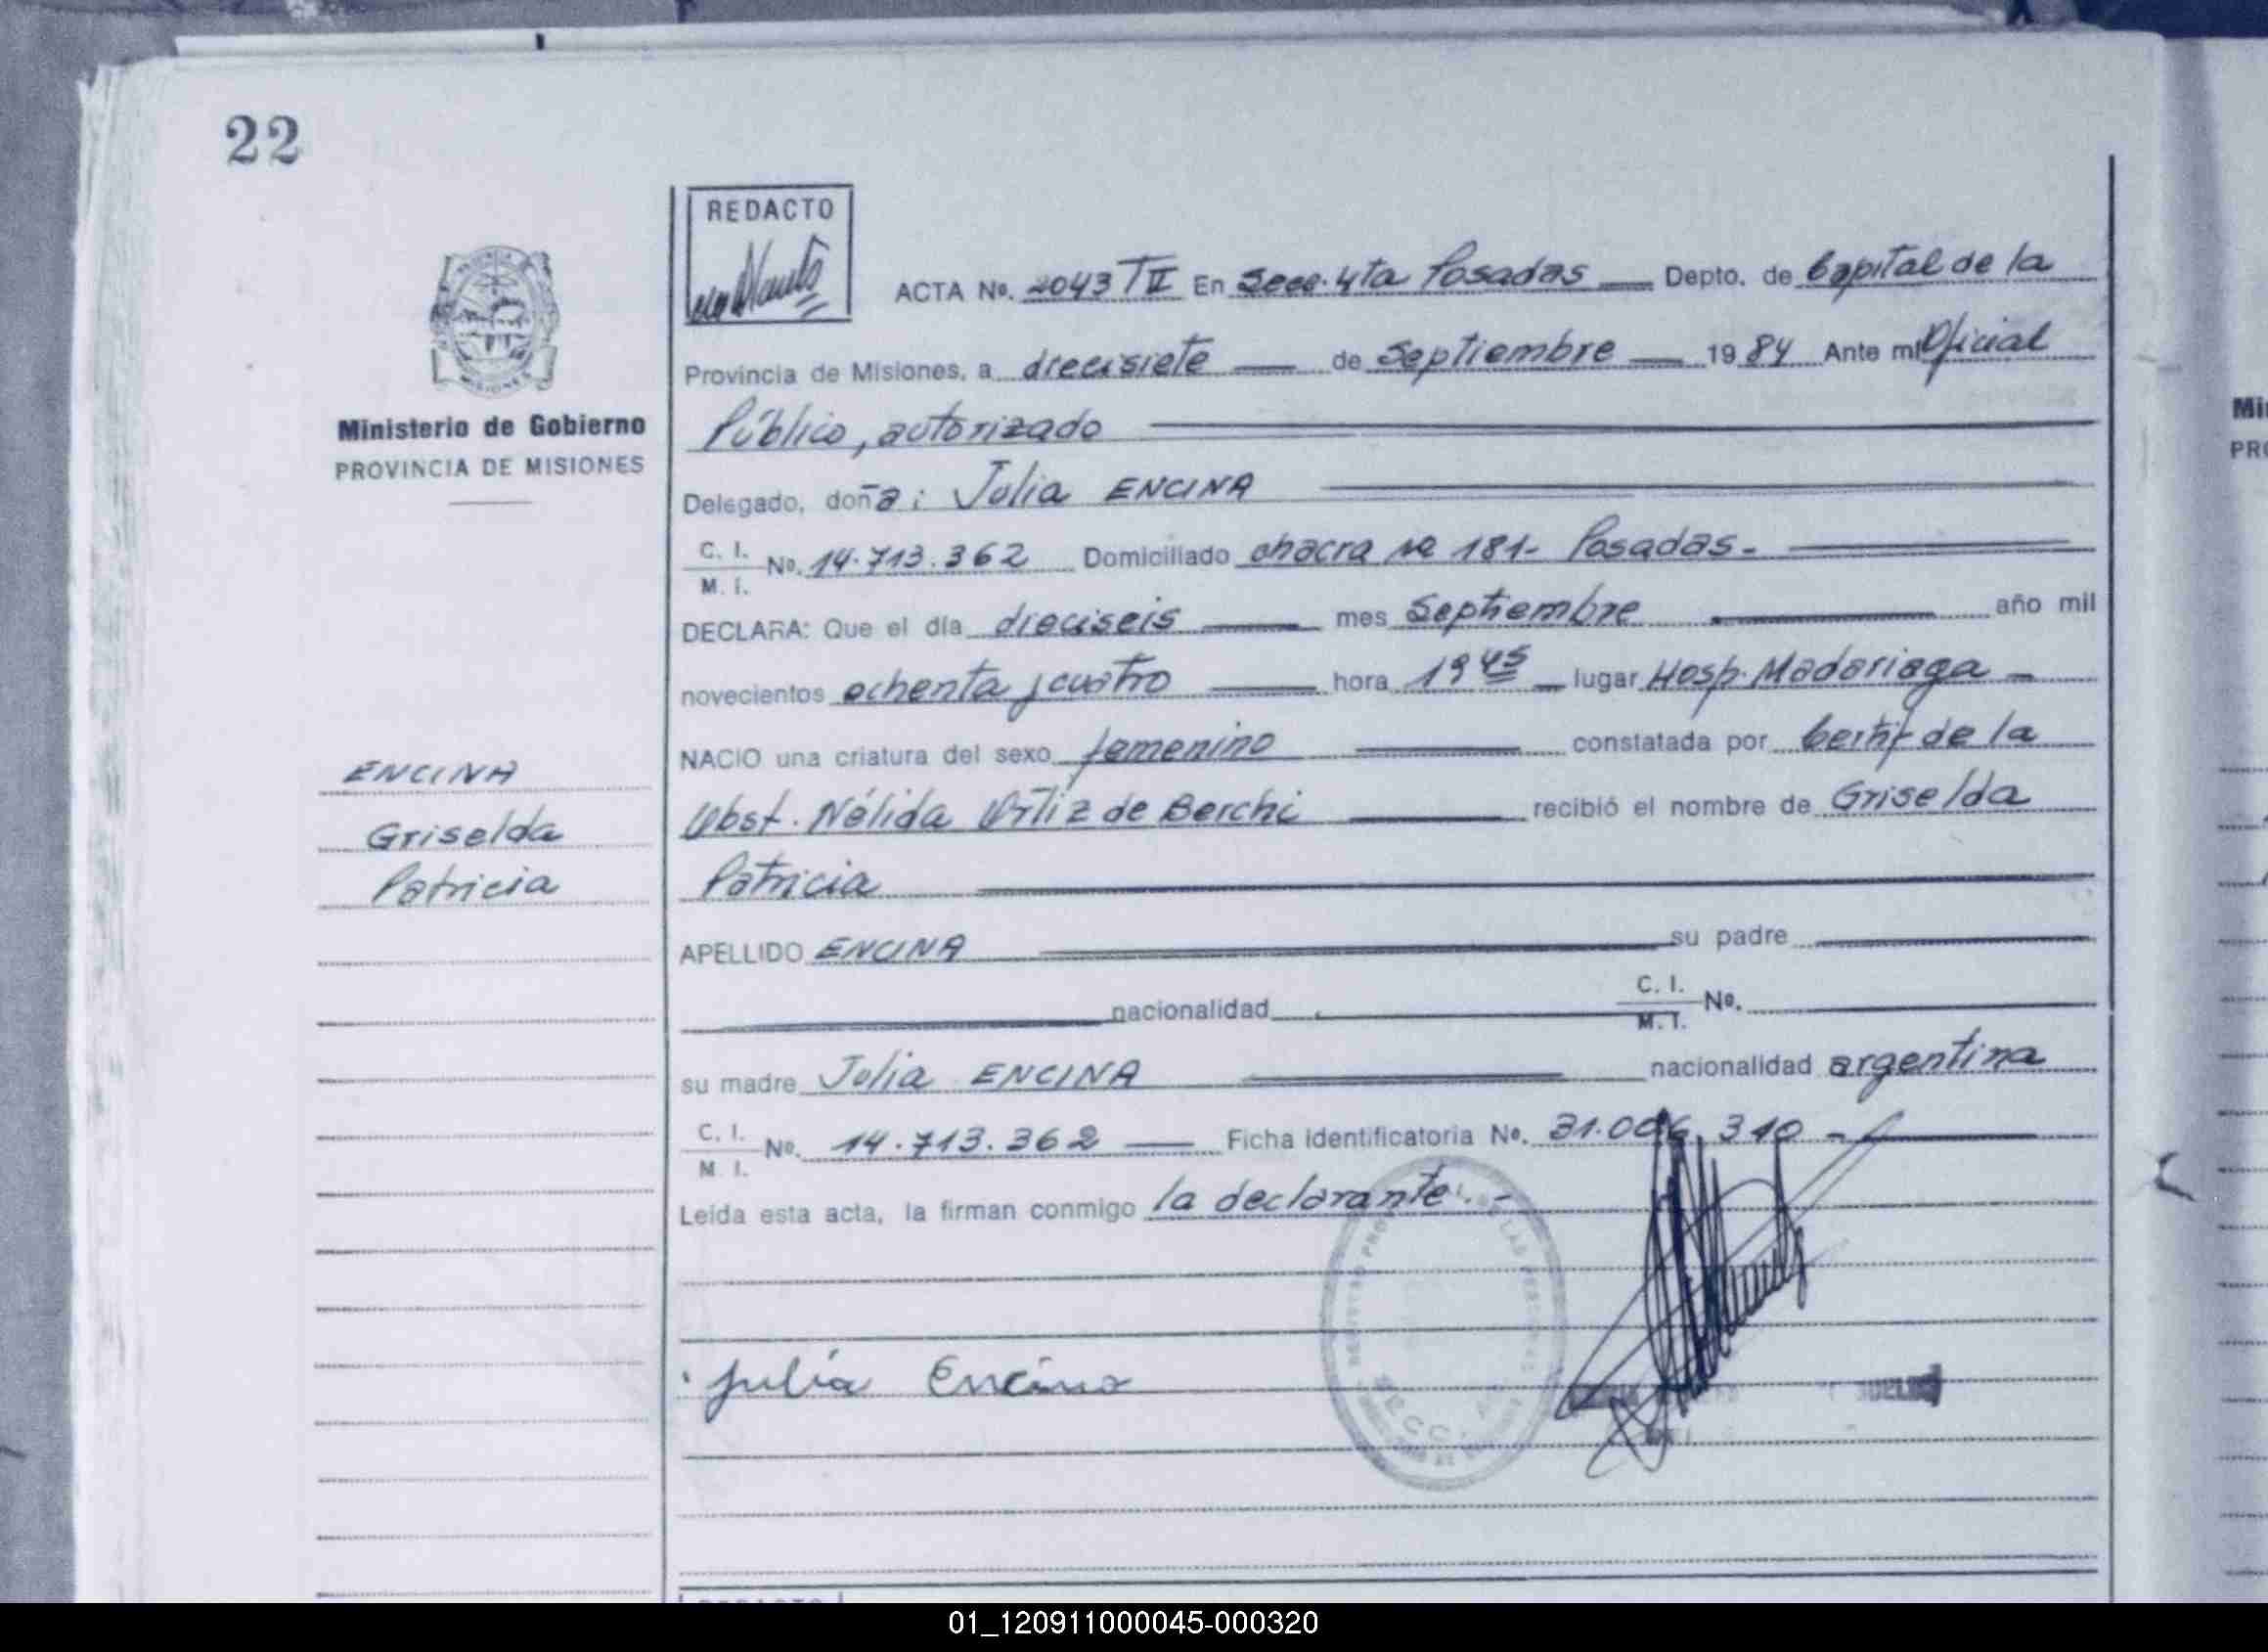 22
REDACTO
ACTA Nº. 2043 T II En Secc. 4ta Posadas Depto. de Capital de la
Provincia de Misiones, a diecisiete de Septiembre 1984 Ante mi Oficial
Ministerio de Gobierno
PROVINCIA DE MISIONES
Público, autorizado
Delegado, doña: Julia ENCINA
C. I.
M. I. Nº. 14.713.362 Domiciliado chacra Nº 181- Posadas.-
DECLARA: Que el día dieciseis mes Septiembre año mil
novecientos ochenta y cuatro hora 19 45 lugar Hosp. Madariaga
NACIO una criatura del sexo femenino constatada por Certif de la
Obst. Nélida Ortiz de Berchi recibió el nombre de Griselda
Patricia
ENCINA
Griselda
Patricia
APELLIDO ENCINA su padre
nacionalidad C. I.
M. I. Nº.
su madre Julia ENCINA nacionalidad argentina
C. I.
M. I. Nº. 14.713.362 Ficha identificatoria Nº. 31.006.310 -
Leída esta acta, la firman conmigo la declarante.-
Julia Encina
SECC.
Mi
PRO
01_120911000045-000320